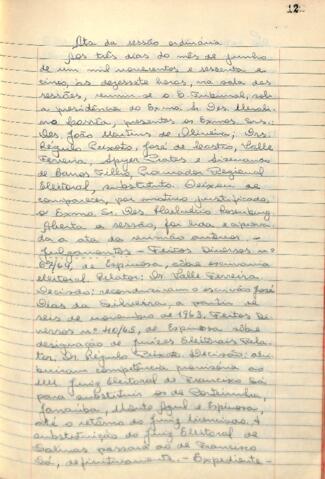 12
Ata da sessão ordinária
Aos três dias do mês de junho
de um mil novecentos e sessenta e
cinco, às dezessete horas, na sala das
sessões, reuniu-se o E. Tribunal, sob
a presidência do Exmo. Sr. Des.
Corrêa, presentes os Exmos. Srs.:
Des. João Martins de Oliveira, Drs.
Régulo Peixoto, José de Castro, Valle
Ferreira, Prates e
de Barros Filho, Procurador Regional
Eleitoral, substituto. Deixou de
comparecer, por motivo justificado,
o Exmo. Sr. Des.
Aberta a sessão, foi lida e aprova-
da a ata da reunião anterior. -
Julgamentos - Feitos Diversos nº
de Espinosa, escrivania
eleitoral. Relator: Dr. Valle Ferreira.
Decisão: reconduziram o escrivão José
Dias da Silveira, a partir de
seis de novembro de 1963. Feitos Di-
versos nº 40/65, de Espinosa sôbre
designação de Juízes Eleitorais Rela-
tor, Dr. Régulo Peixoto. Decisão: atri-
buiram competência provisória ao
MM Juiz Eleitoral de Francisco Sá
para substituir os de Porteirinha,
Janaúba, Monte Azul e Espinosa,
até o retôrno do Juiz licenciado. A
substituição do Juiz Eleitoral de
Salinas passará ao de Francisco
Sá, - Expediente -